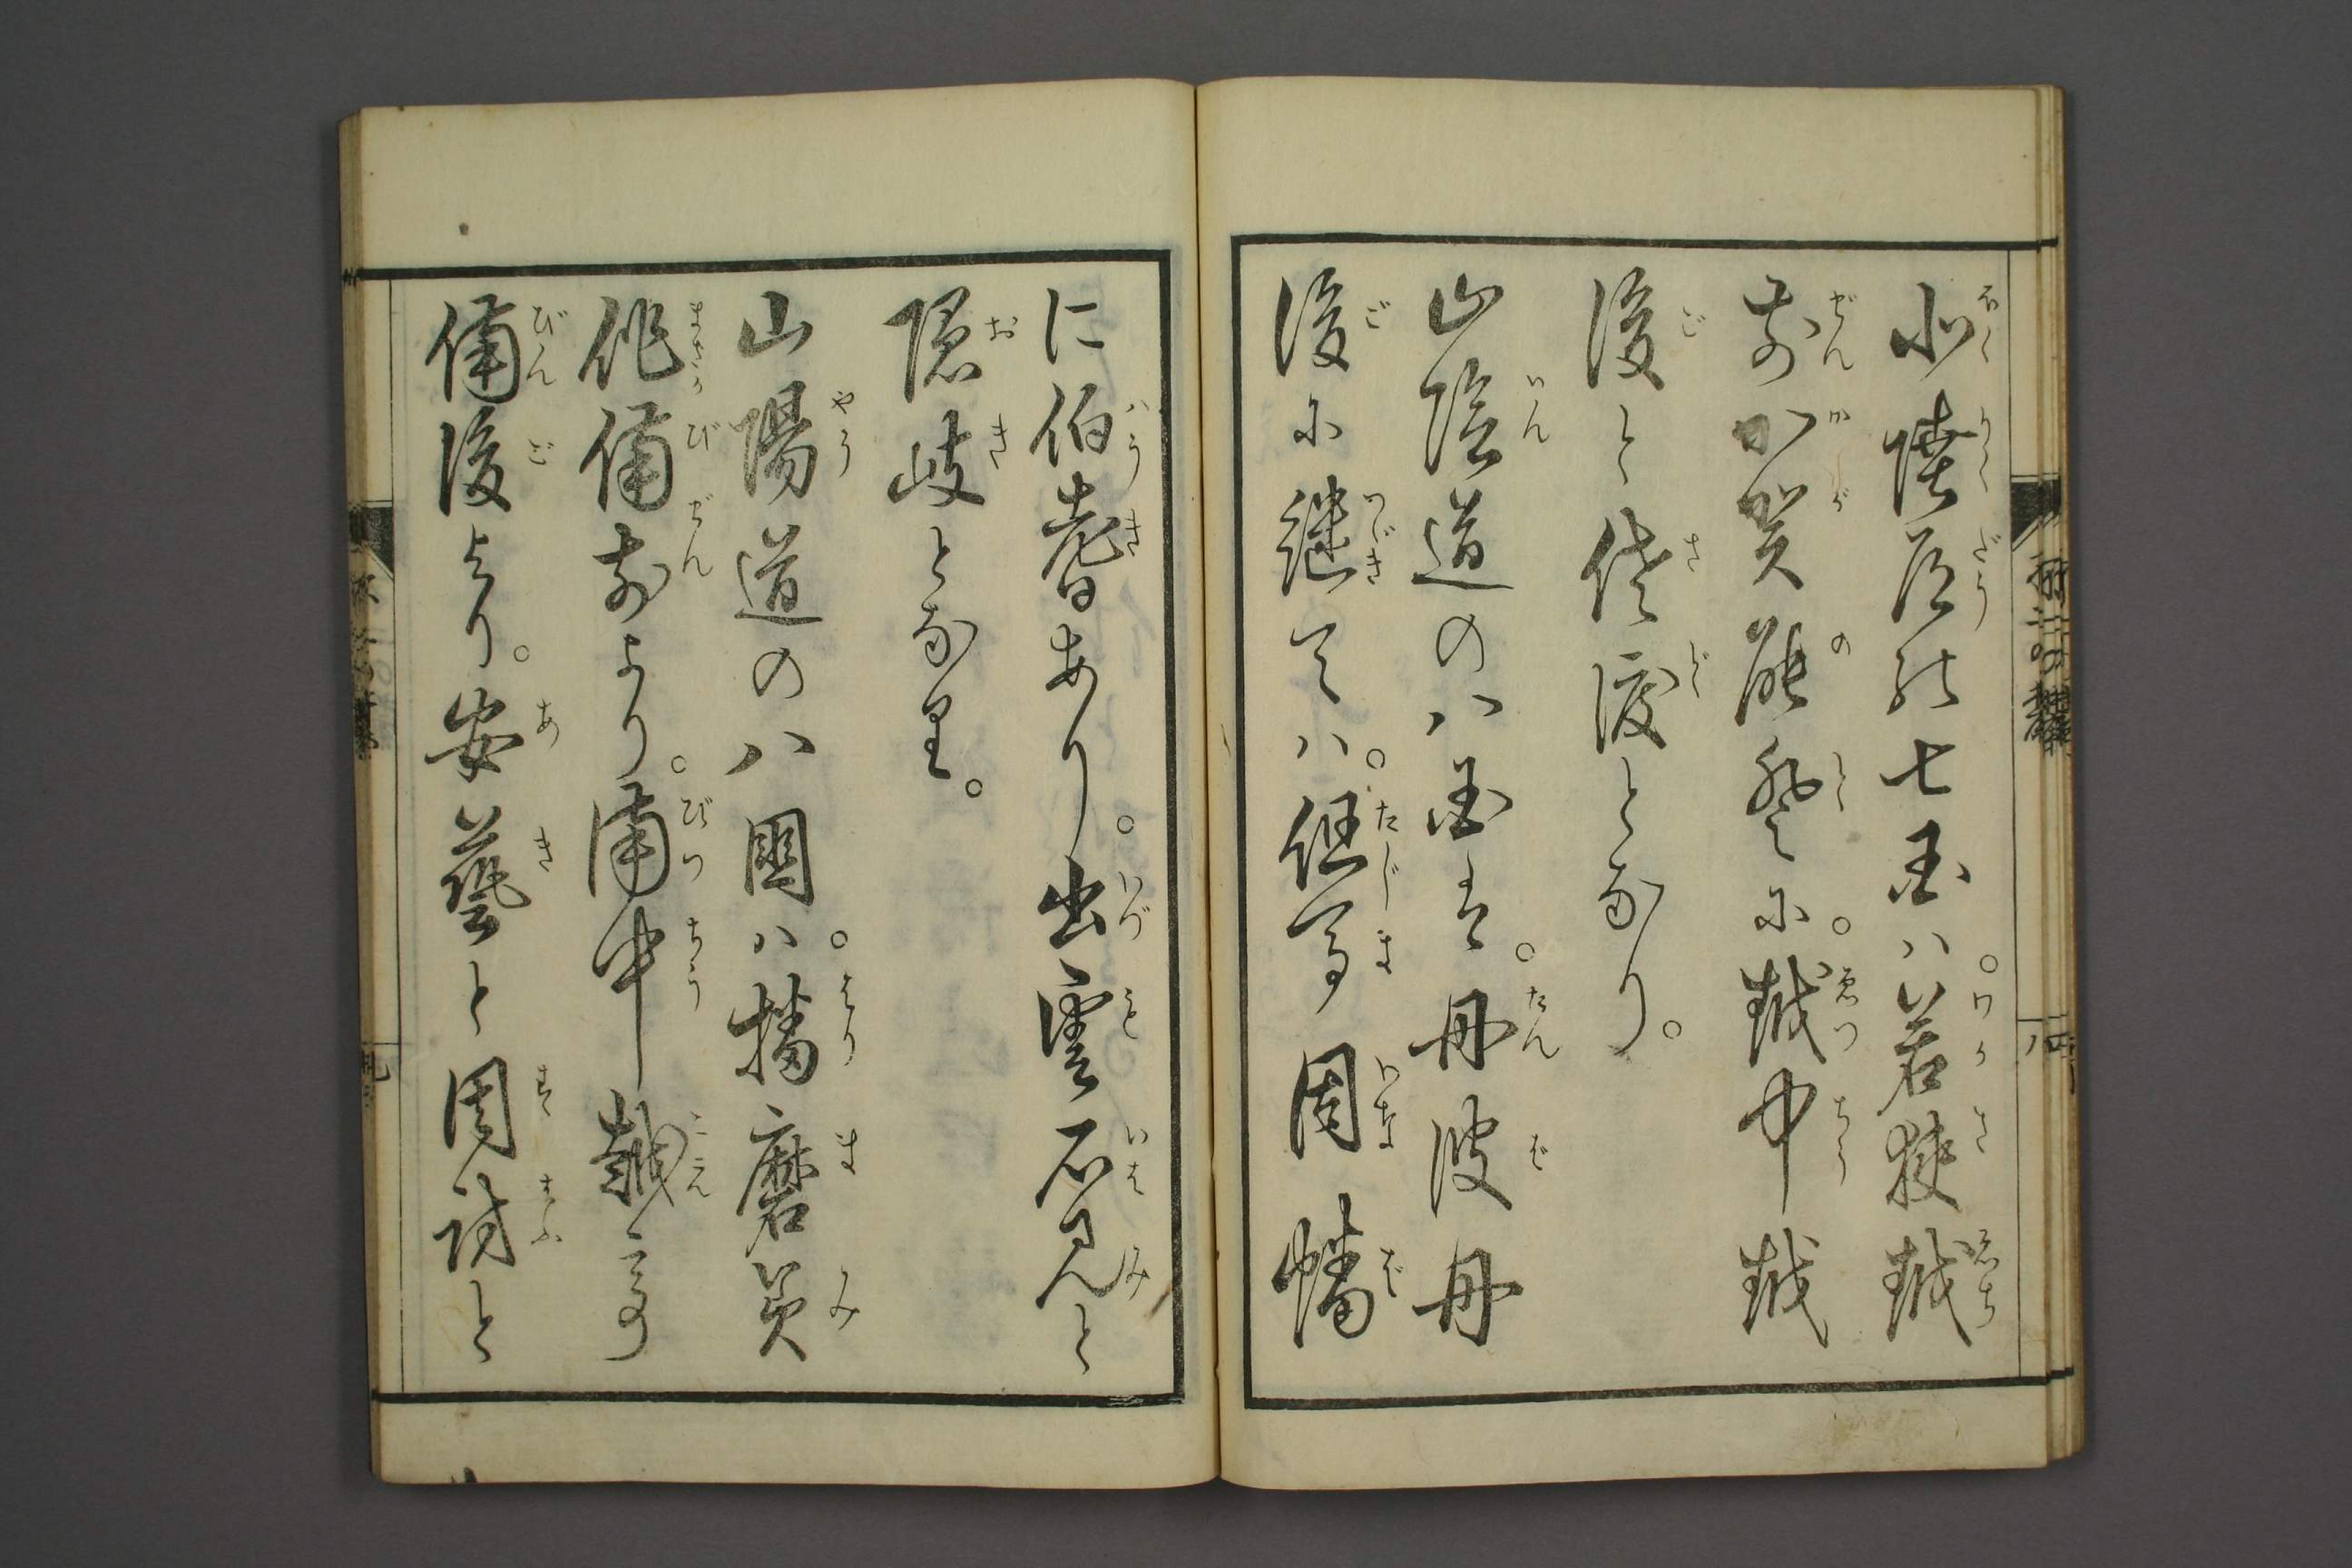 北陸道の七国ハ。若狭越
前加賀能登に。越中越
後と佐渡となり。
山陰道の八国は。丹波丹
後に継てハ。但馬因幡
に伯耆あり。出雲石見と
隠岐となり。
山陽道の八国ハ。播磨美
作備前より。備中越て
備後より。安藝と周防と